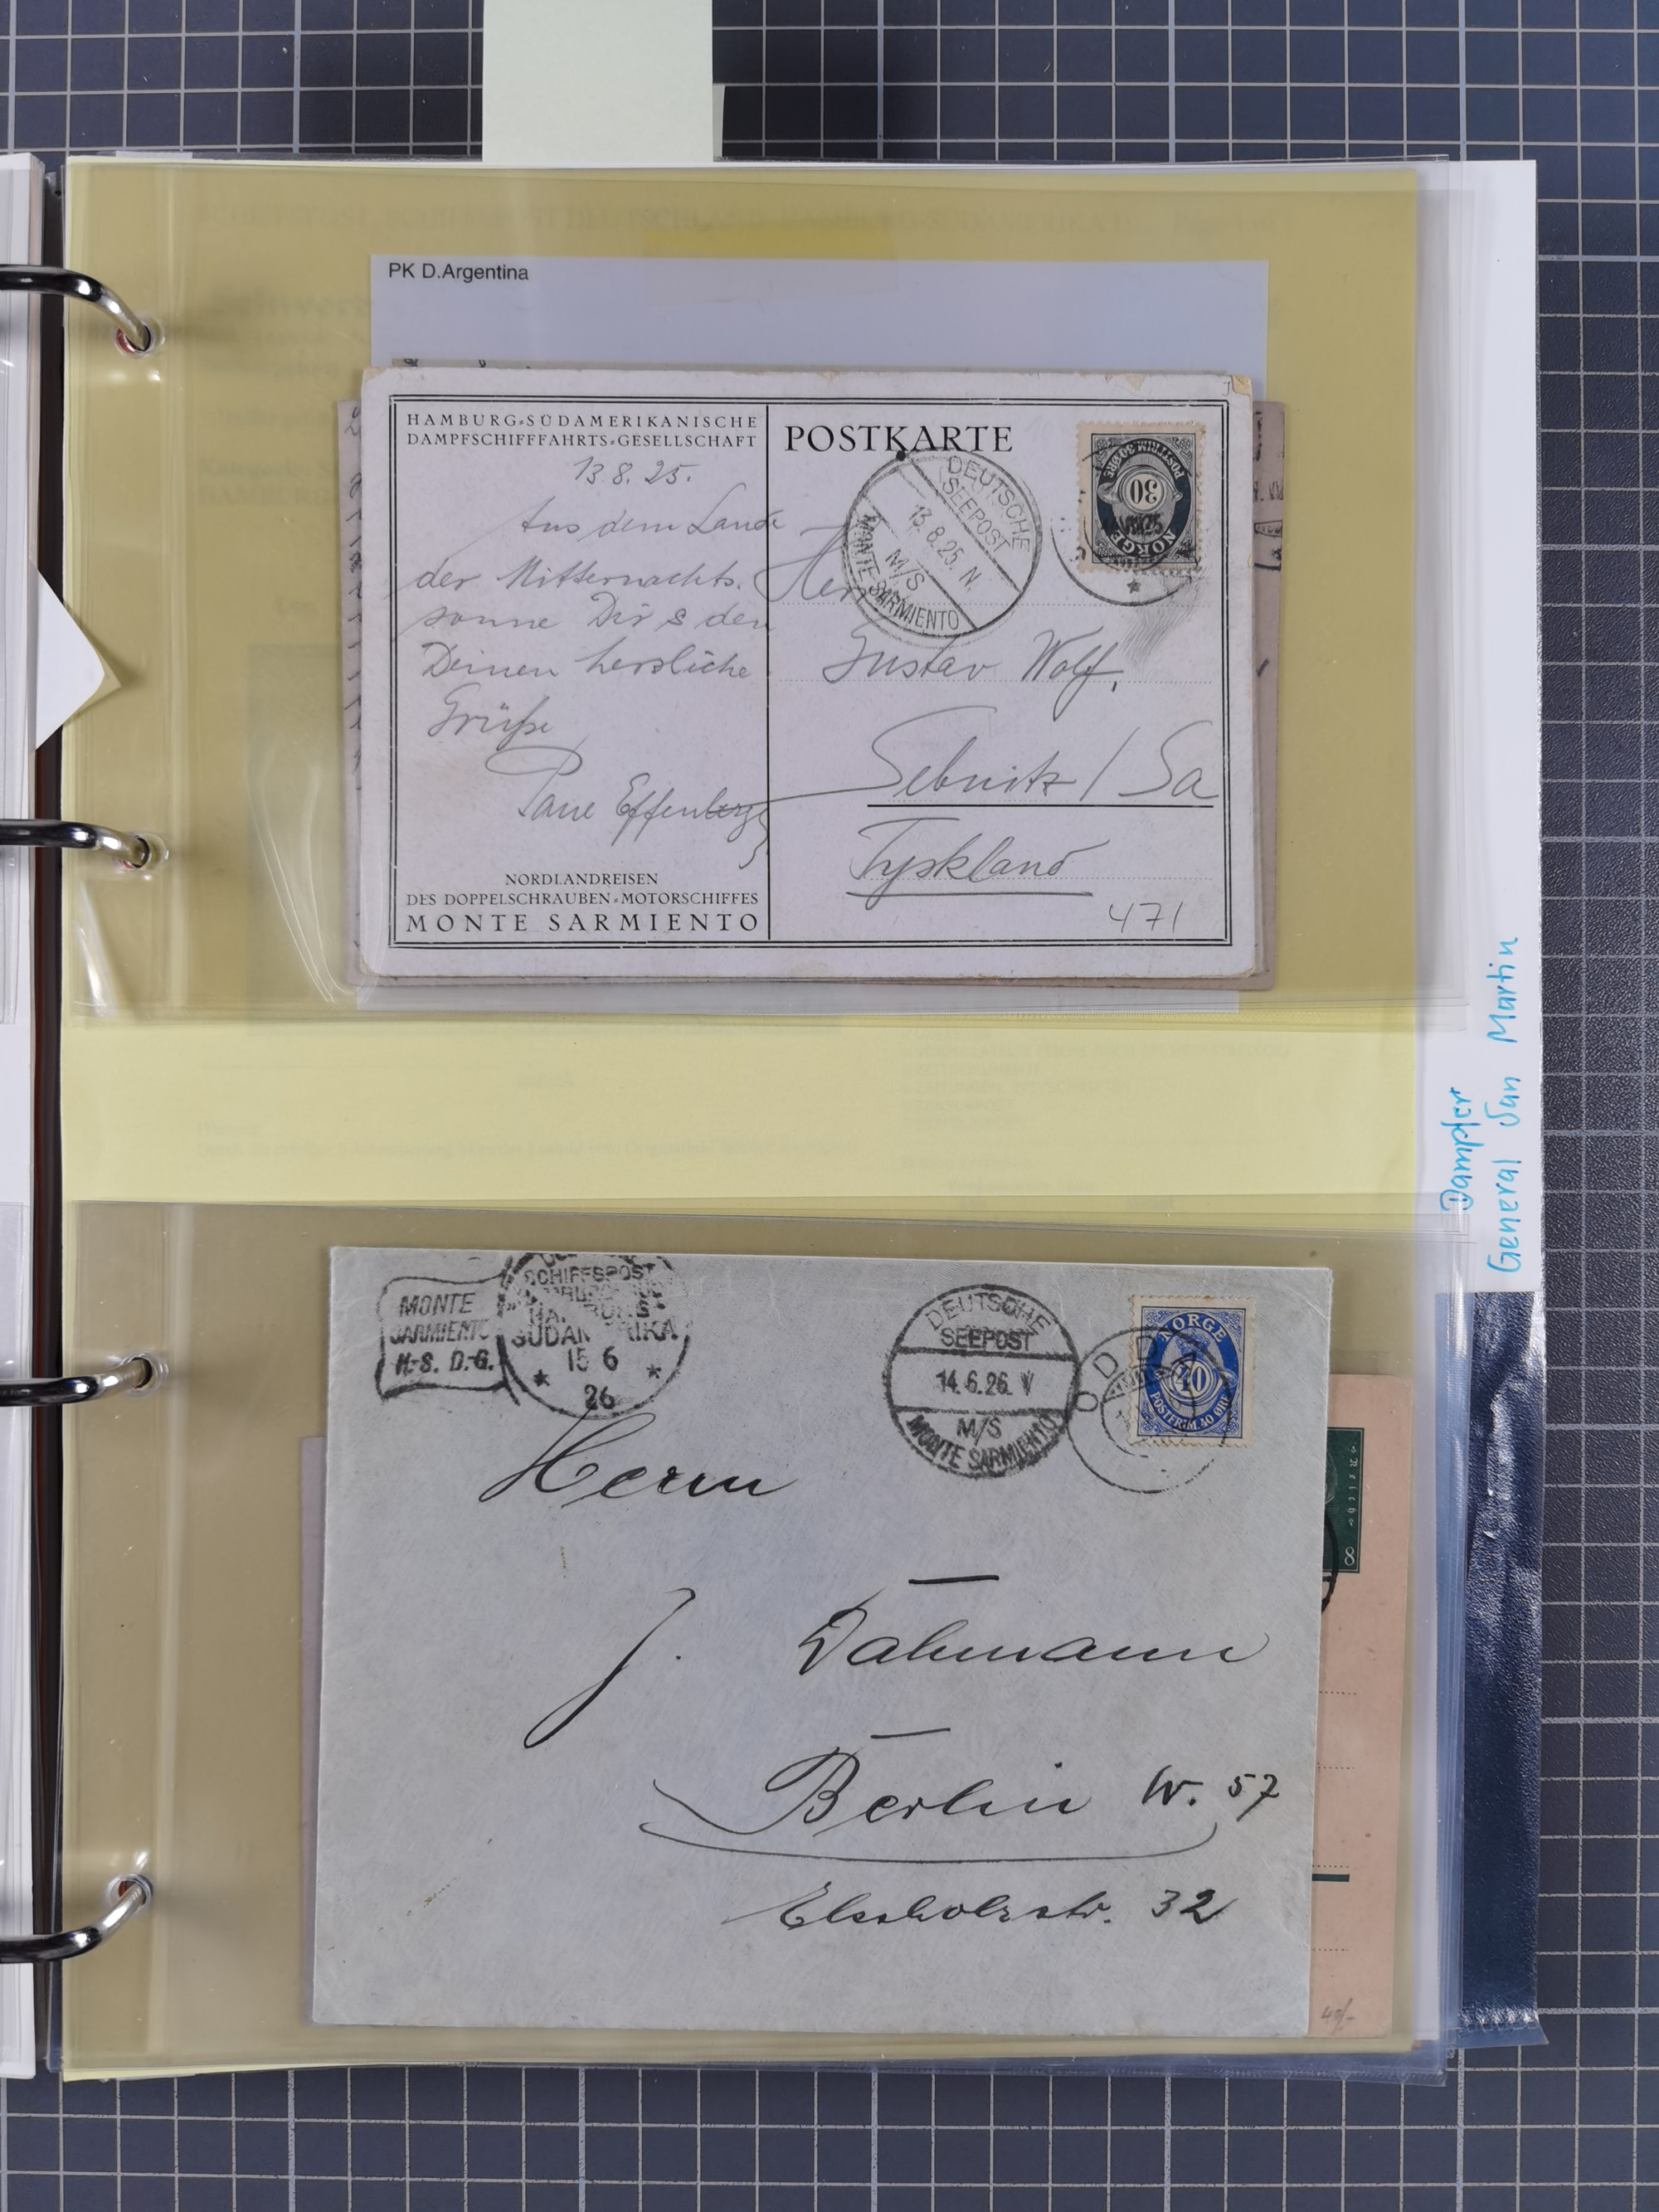 PK D.Argentina
HAMBURG-SÜDAMERIKANISCHE
DAMPFSCHIFFFAHRTS-GESELLSCHAFT
13.8.25.
Aus dem Lande
der Mitternachts-
sonne Dir & den
Deinen herzliche
Grüße
Effenberger
NORDLANDREISEN
DES DOPPELSCHRAUBEN-MOTORSCHIFFES
MONTE SARMIENTO
POSTKARTE
DEUTSCHE
SEEPOST
13.8.25. N.
M/S
MONTE SARMIENTO
POSTFRIM 30 ØRE
30
NORGE
Herrn
Gustav Wolf,
Sebnitz / Sa
Tyskland
471
Dampfer
General San Martin
MONTE
SARMIENTO
H.-S. D.-G.
SCHIFFSPOST
SÜDAMERIKA
15 6
26
DEUTSCHE
SEEPOST
14.6.26. V
M/S
MONTE SARMIENTO
ODDA
NORGE
40
POSTFRIM. 40 ØRE
8
Herrn
J. Dahmann
Berlin W. 57
Elssholzstr. 32